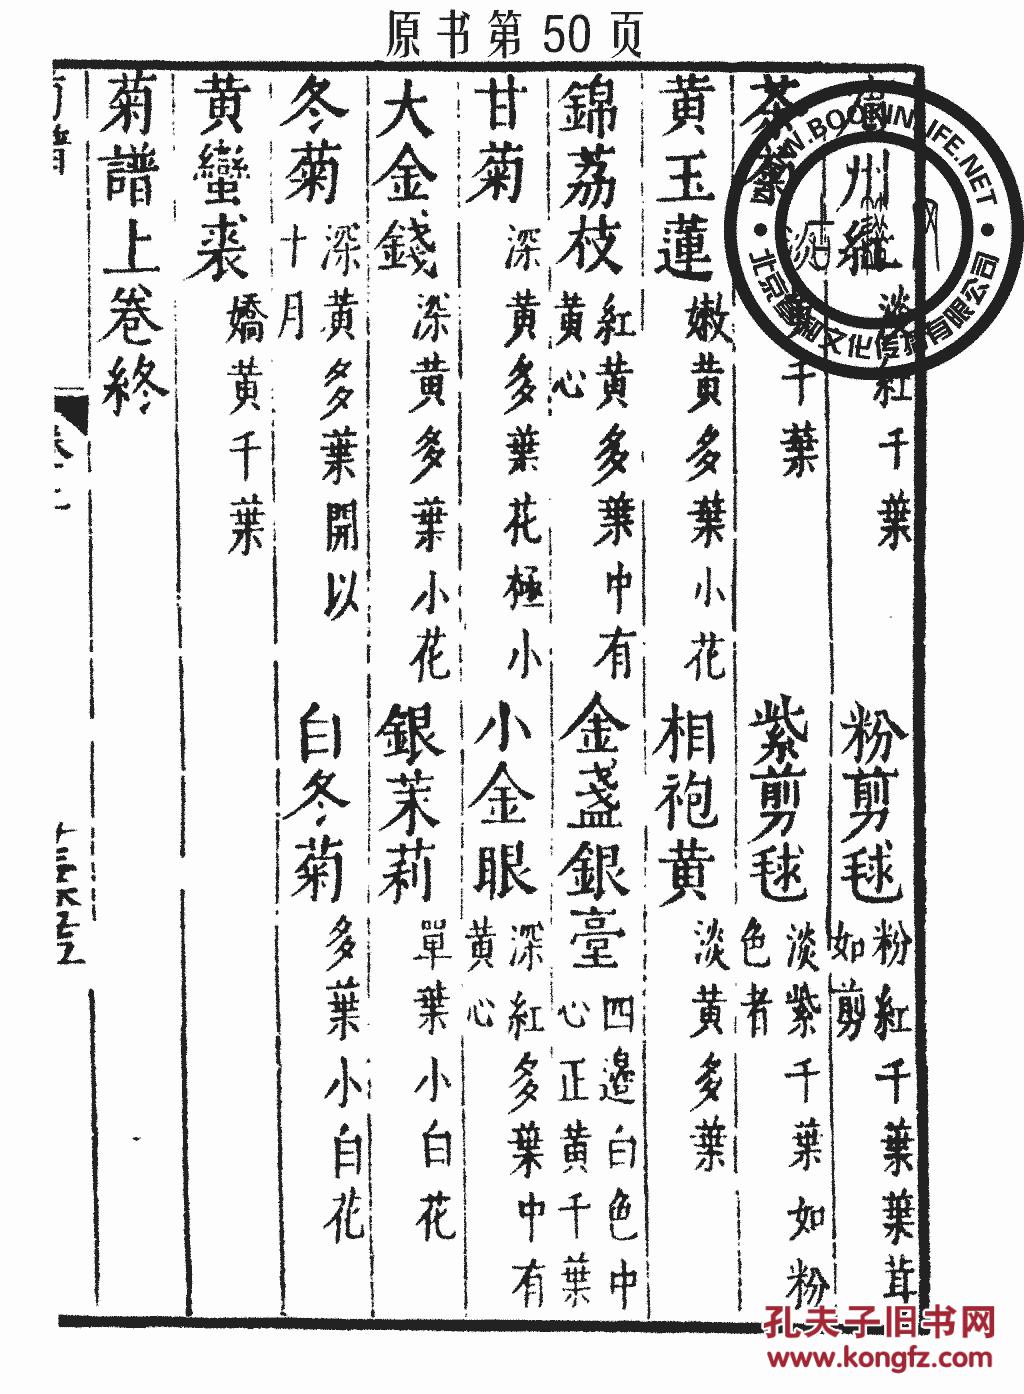 原书第50页
州紅 淡紅千葉
粉剪毬 粉紅千葉葉茸如剪
茶 千葉
紫剪毬 淡紫千葉如粉色者
黃玉蓮 嫩黃多葉小花
相袍黃 淡黃多葉
錦荔枝 紅黃多葉中有黃心
金盞銀臺 四邊白色中心正黃千葉
甘菊 深黃多葉花極小
小金眼 深紅多葉中有黃心
大金錢 深黃多葉小花
銀茉莉 單葉小白花
冬菊 深黃多葉開以十月
白冬菊 多葉小白花
黃蠻裘 嬌黃千葉
菊譜上卷終
WWW.BOOKINLIFE.NET
孔夫子旧书网
www.kongfz.com